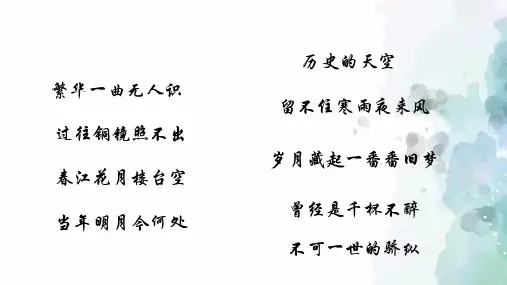 繁华一曲无人识
过往铜镜照不出
春江花月楼台空
当年明月今何处
历史的天空
留不住寒雨夜来风
岁月藏起一番番旧梦
曾经是千杯不醉
不可一世的骄纵